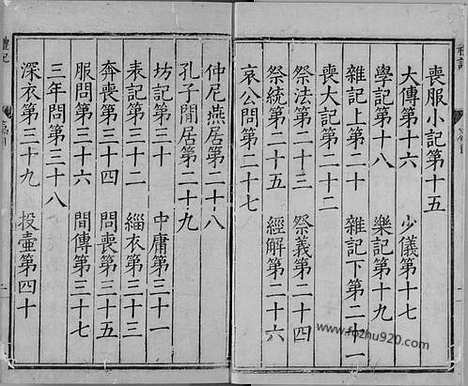 喪服小記第十五
大傳第十六 少儀第十七
學記第十八 樂記第十九
雜記上第二十 雜記下第二十一
喪大記第二十二
祭法第二十三 祭義第二十四
祭統第二十五 經解第二十六
哀公問第二十七
仲尼燕居第二十八
孔子閒居第二十九
坊記第三十 中庸第三十一
表記第三十二 緇衣第三十三
奔喪第三十四 問喪第三十五
服問第三十六 間傳第三十七
三年問第三十八
深衣第三十九 投壺第四十
www.fozhu920.com